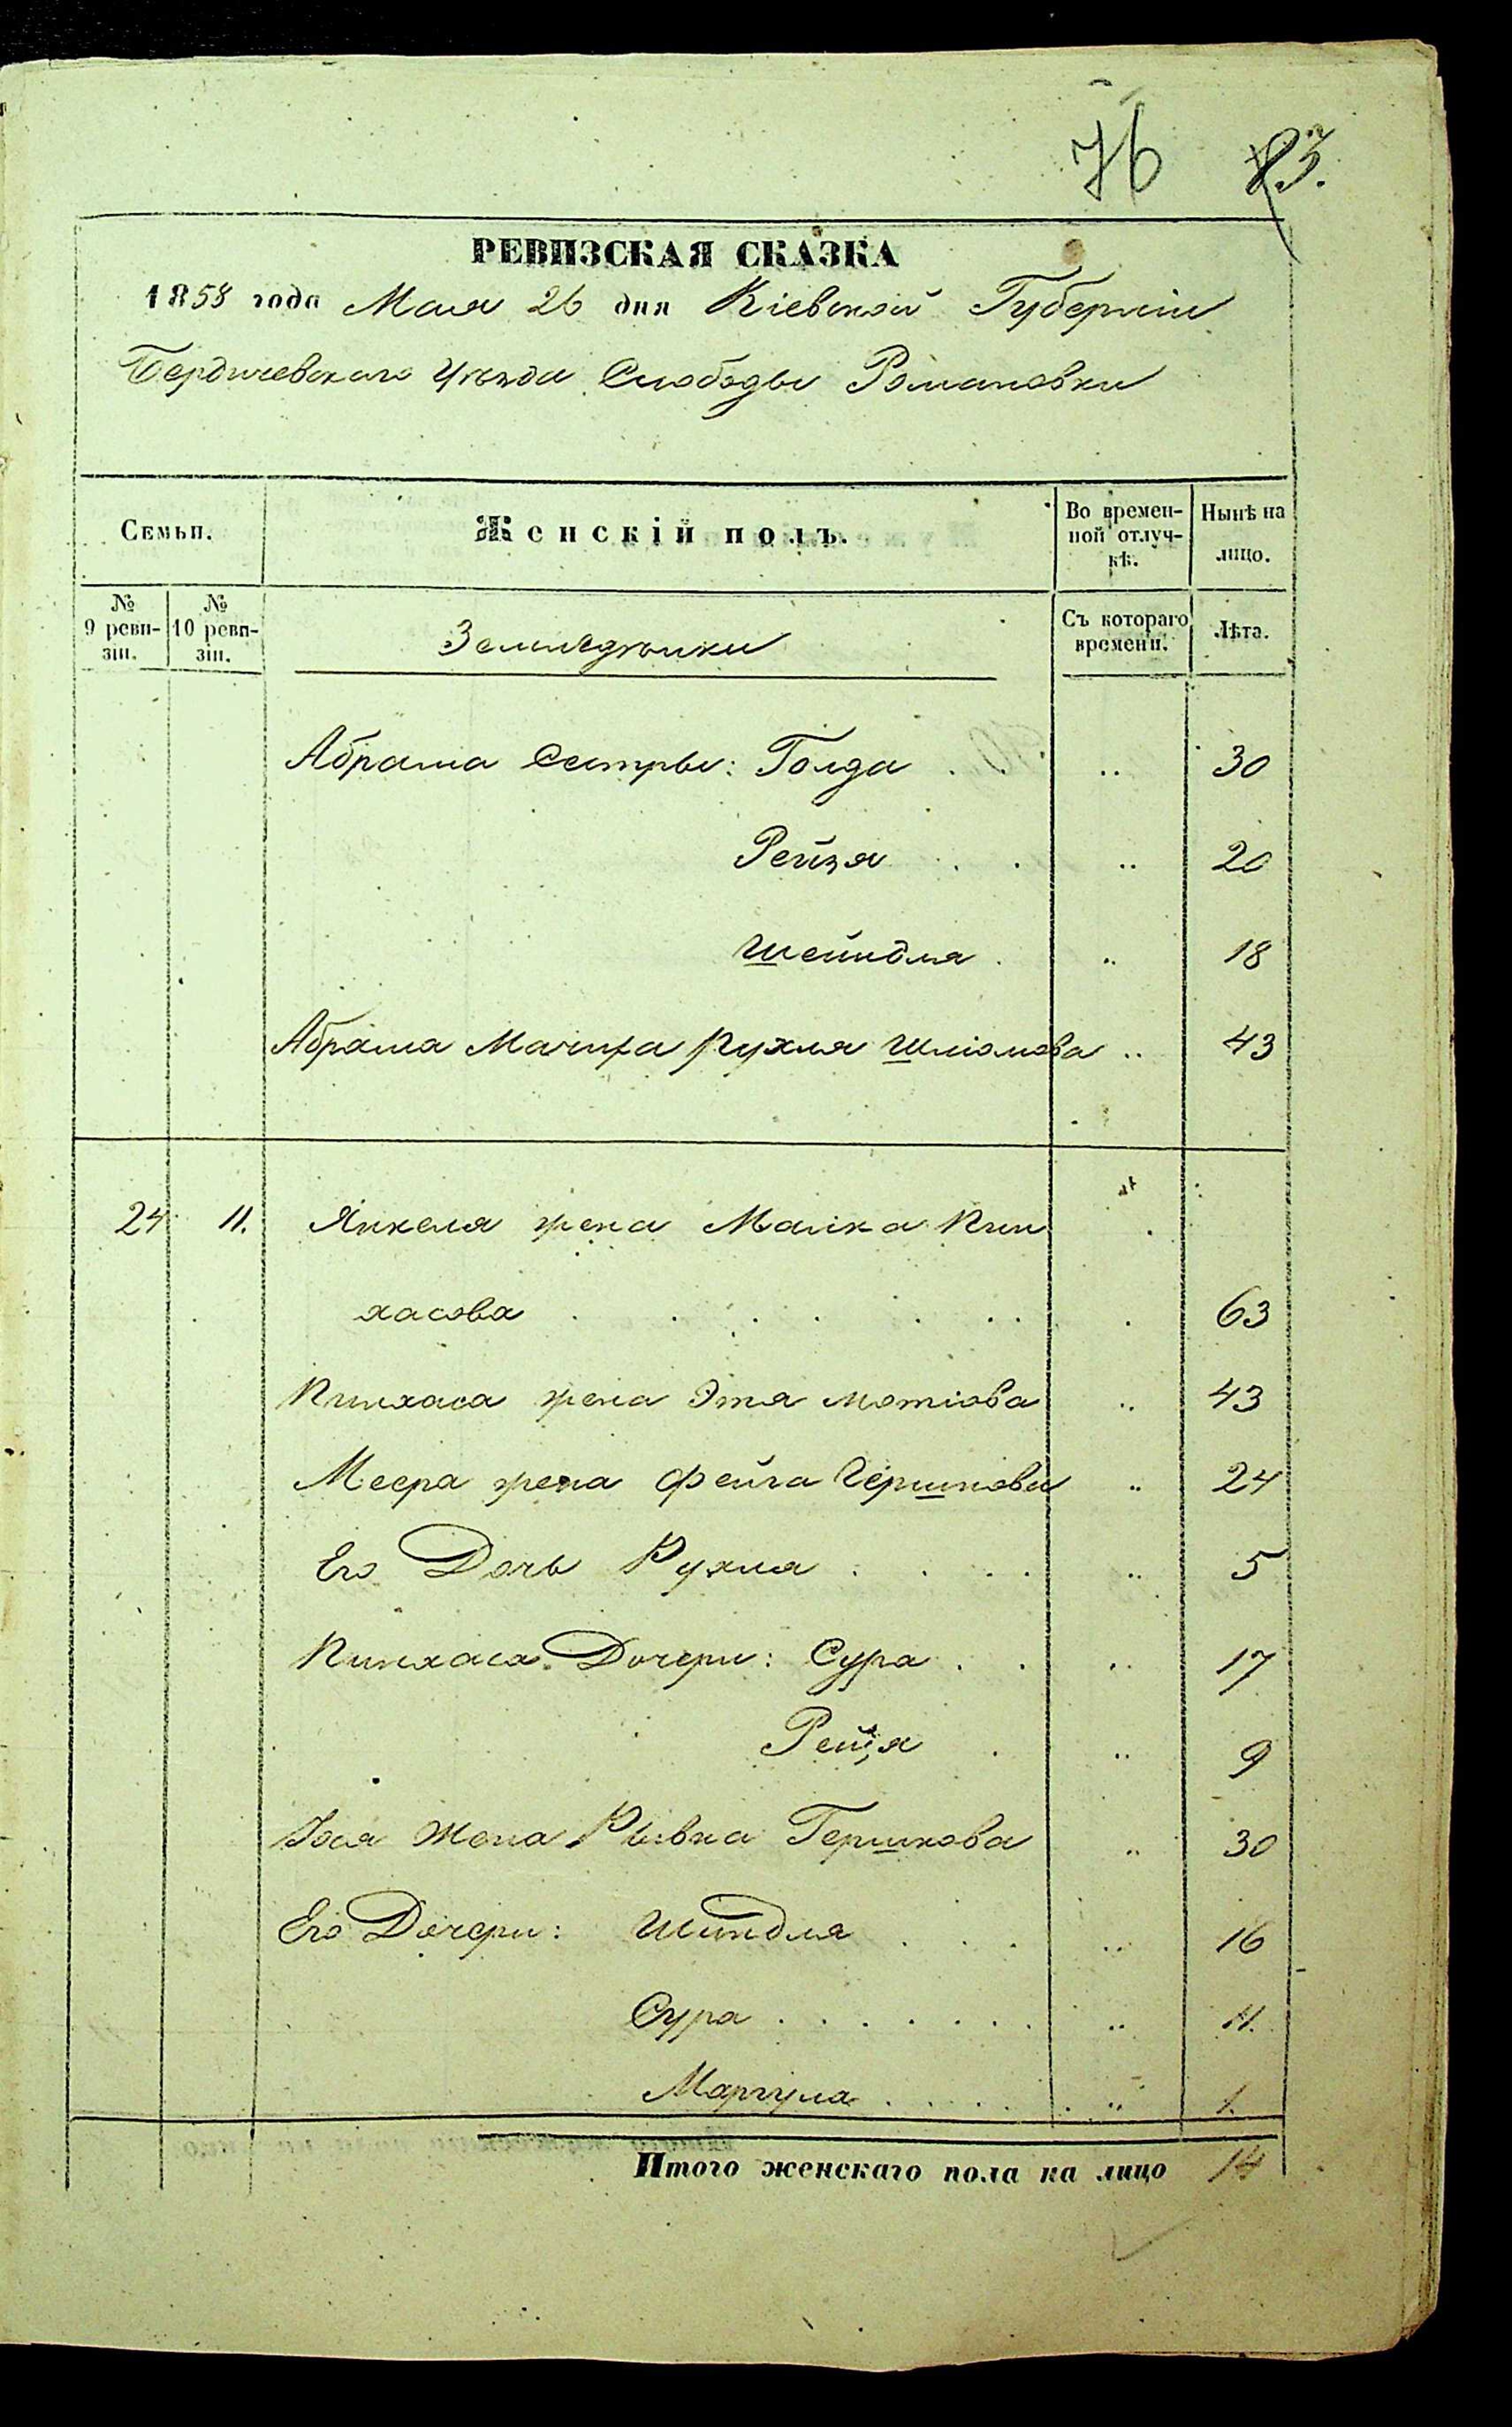 76 83.
РЕВИЗСКАЯ СКАЗКА
1858 года Мая 26 дня Кіевской Губерніи
Бердичевскаго Уѣзда Слободы Романовки
Семьи. Женскій полъ. Во времен-ной отлуч-кѣ. Нынѣ на лицо.
№ 9 реви-зіи. № 10 реви-зіи. Земледѣльки Съ котораго времени. Лѣта.
Абрама Сестры: Голда . . .. 30
Рейзя . . .. 20
Шейндля . .. 18
Абрама Мачиха Рухля Шліомова .. 43
24 11. Янкеля жена Малка Пин
хасова . . . . . . . . 63
Пинхаса жена Этя Мотіова .. 43
Меера жена Фейга Гершкова .. 24
Его Дочь Рухля . . . . .. 5
Пинхаса Дочери: Сура . . .. 17
Рейзя . .. 9
Жена Рывка Гершкова .. 30
Его Дочери: Шейндля . . . .. 16
Сура . . . . . . . .. 11.
Маргуля . . . . . .. 1.
Итого женскаго пола на лицо 14